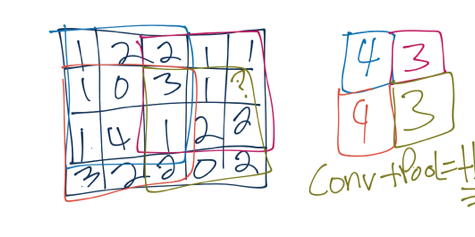 1 2 2 1 1
1 0 3 1 2
1 4 1 2 2
3 2 2 0 2
4 3
4 3
Conv+Pool=